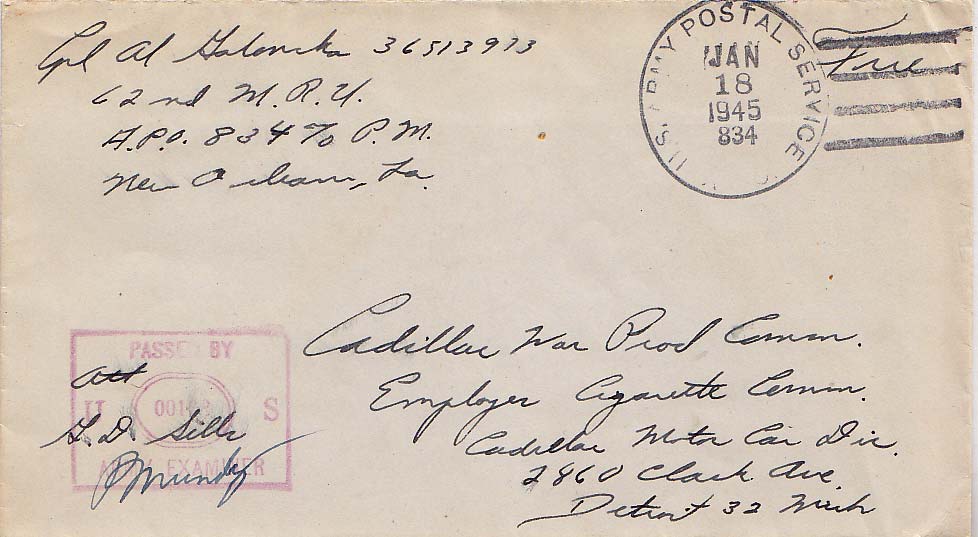 Cpl Al Galonska 36513973
62nd M.R.U.
A.P.O. 834 c/o P.M.
New Orleans, La.
U.S. ARMY POSTAL SERVICE
JAN
18
1945
834
Free
Cadillac War Prod Comm.
Employer Cigarette Comm.
Cadillac Motor Car Div.
2860 Clark Ave.
Detroit 32 Mich
PASSED BY
Att
U S
G. D. Sills
ARMY EXAMINER